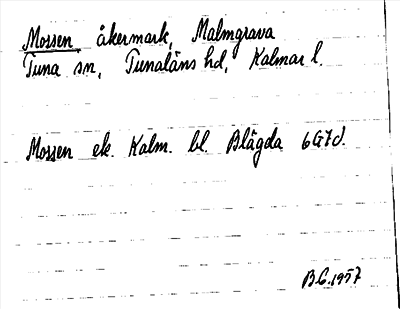 Mossen åkermark, Malmgrava
Tuna sn, Tunaläns hd, Kalmar l.
Mossen ek. Kalm. bl. Blägda 6G7d.
B.G. 1957